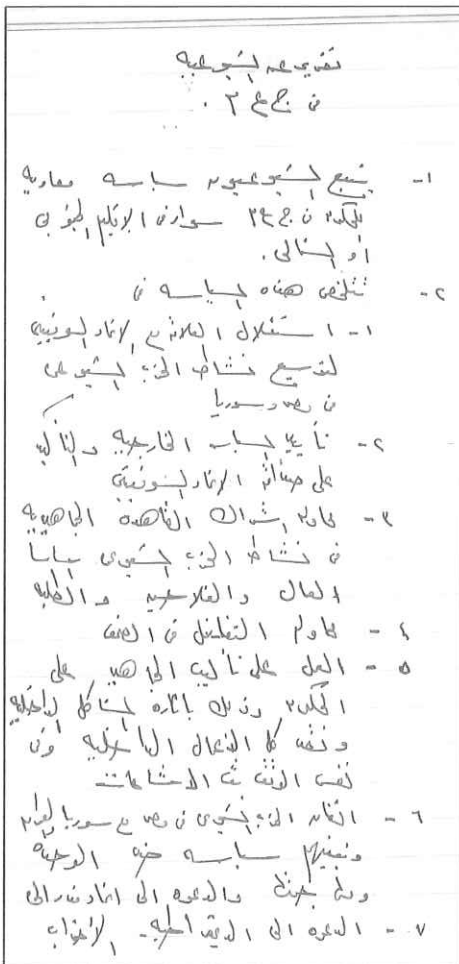 تقدير عن الشيوعية
فى ج ع م .
١- يتبع الشيوعيون سياسه معاديه
للحكومه فى ج ع م سواء فى الاقليم الجنوبى
او الشمالى .
٢- تتلخص هذه السياسه فى
١- استغلال العلاقه مع الاتحاد السوفييتى
لتوسيع نشاط الحزب الشيوعى
فى مصر وسوريا
٢- تأييد السياسه الخارجيه والتأكيد
على صداقة الاتحاد السوفييتى
٣- محاولة اشراك القاعدة الجماهيرية
فى نشاط الحزب الشيوعى سياسيا
العمال والفلاحين والطلبه
٤- محاولة التغلغل فى الصف
٥- العمل على تأليب الجماهير على
الحكومه وذلك باثارة المشاكل الداخليه
ونقد كل الاعمال الداخليه وفى
نفس الوقت بث الاشاعات
٦- اتفاق الحزب الشيوعى فى مصر مع سوريا والعراق
سياسه ضد الوحدة
والدعوه الى اتحاد فدرالى
٧- الدعوه الى الديمقراطيه - الأحزاب